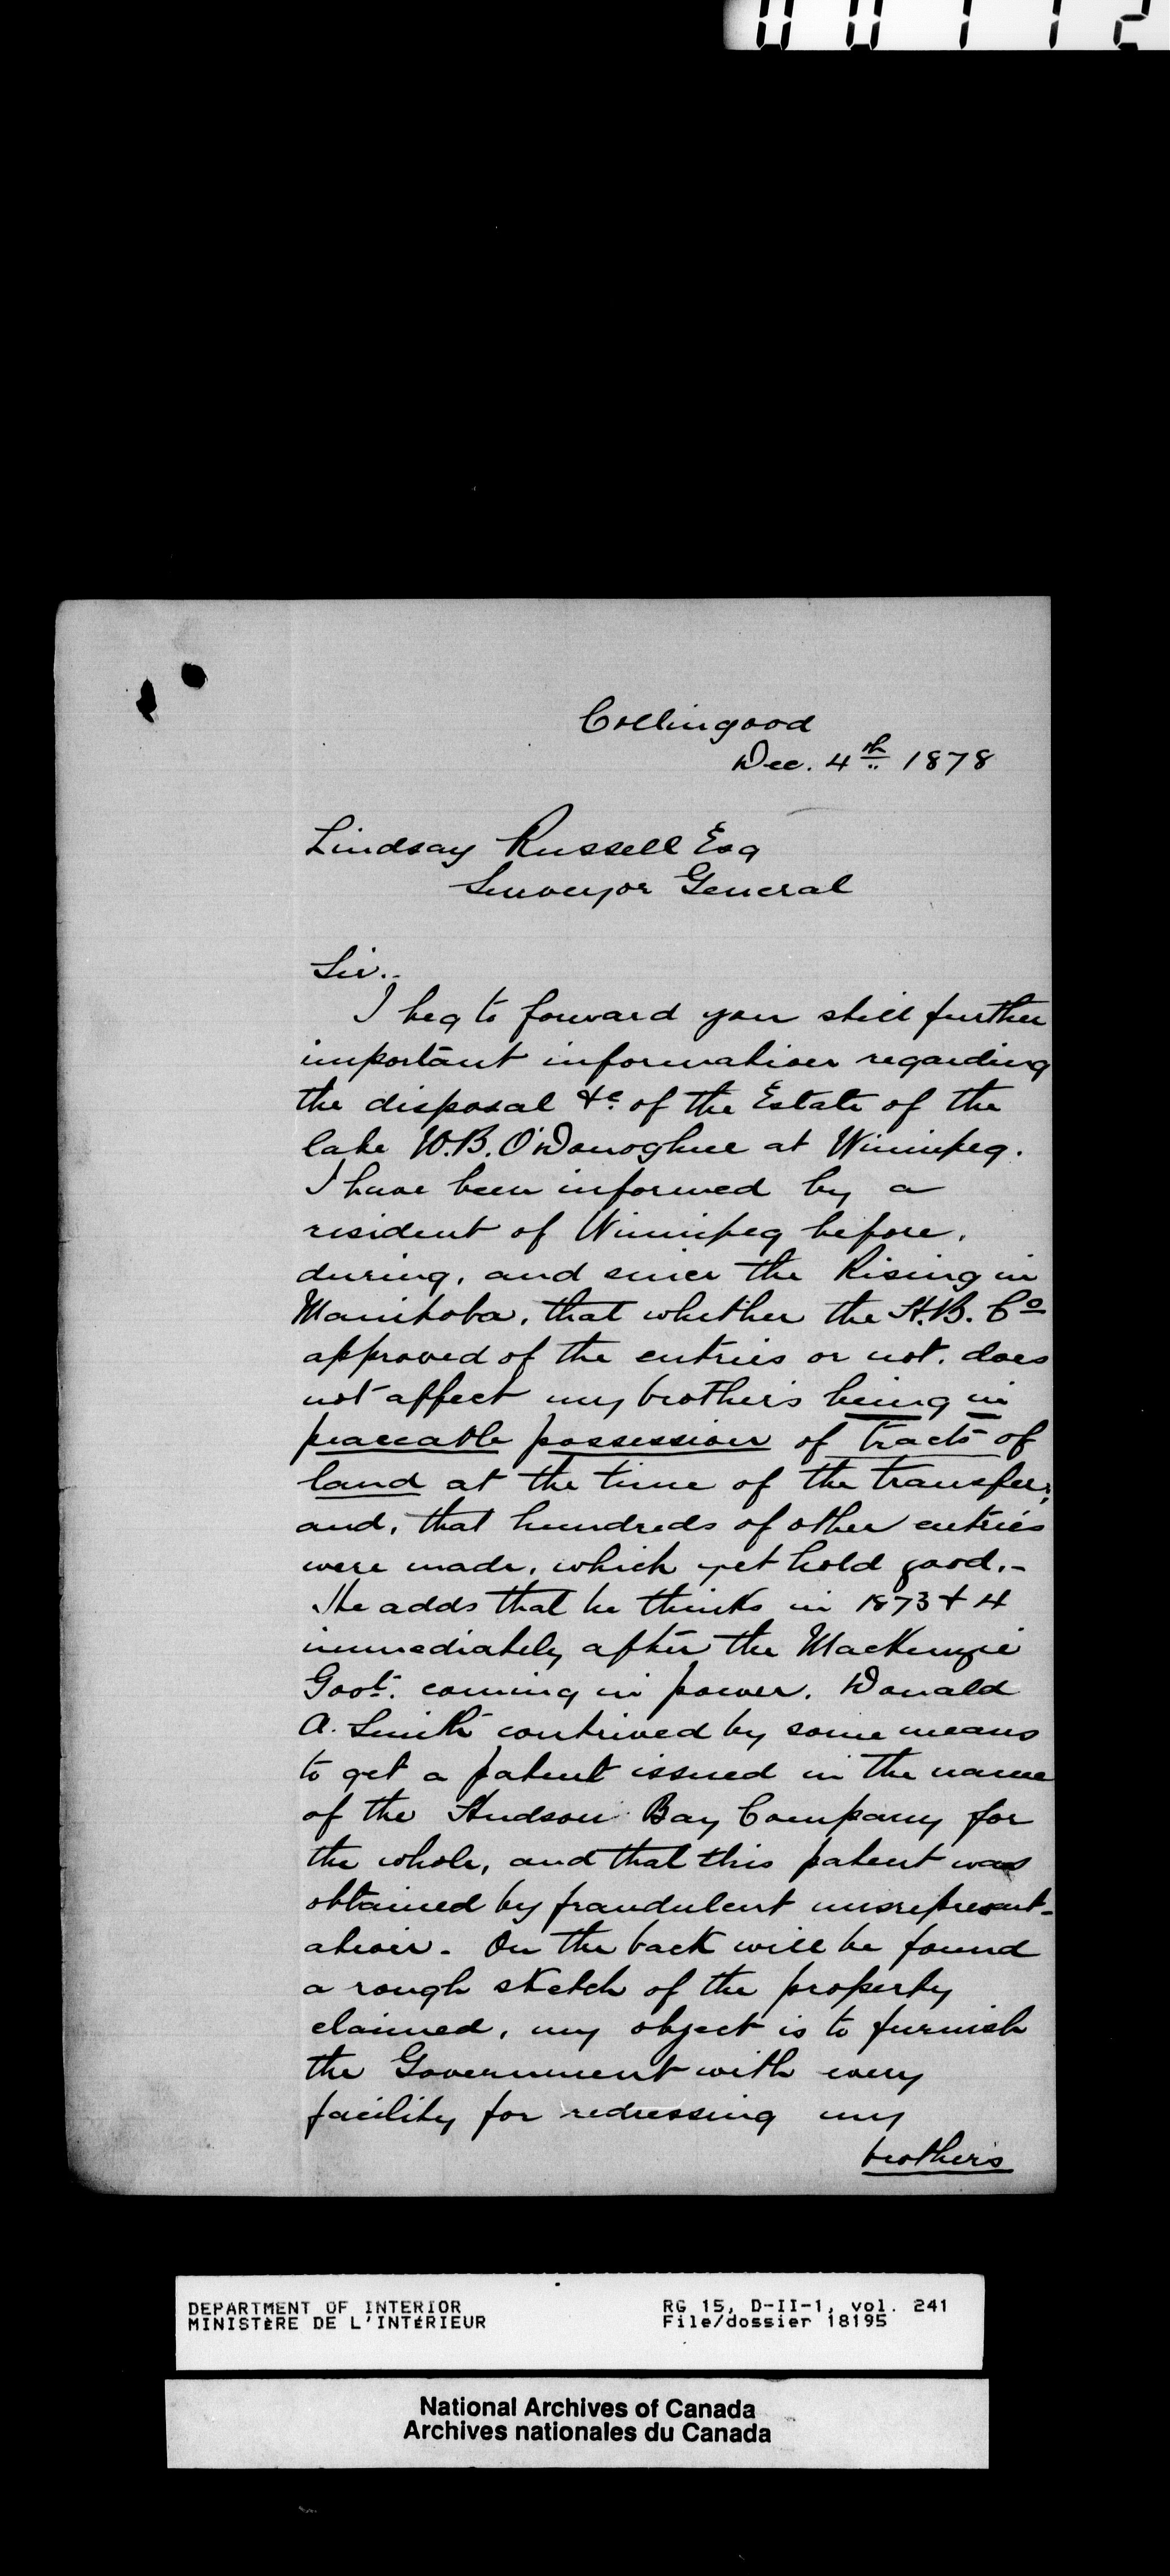 Collingood
Dec. 4th 1878
Lindsay Russell Esq
Surveyor General
Sir.-
I beg to forward you still further
important information regarding
the disposal &c. of the Estate of the
late W.B. O'Donoghue at Winnipeg.
I have been informed by a
resident of Winnipeg before,
during, and since the Rising in
Manitoba, that whether the H.B. Co
approved of the entries or not, does
not affect my brother's being in
peaceable possession of tracts of
land at the time of the transfer;
and, that hundreds of other entries
were made, which yet hold good.-
He adds that he thinks in 1873 & 4
immediately after the MacKenzie
Govt. coming in power, Donald
A. Smith contrived by some means
to get a patent issued in the name
of the Hudson Bay Company for
the whole, and that this patent was
obtained by fraudulent misrepresent-
ation. On the back will be found
a rough sketch of the property
claimed, my object is to furnish
the Government with every
facility for redressing my
brother's
DEPARTMENT OF INTERIOR
MINISTÈRE DE L'INTÉRIEUR
RG 15, D-II-1, vol. 241
File/dossier 18195
National Archives of Canada
Archives nationales du Canada